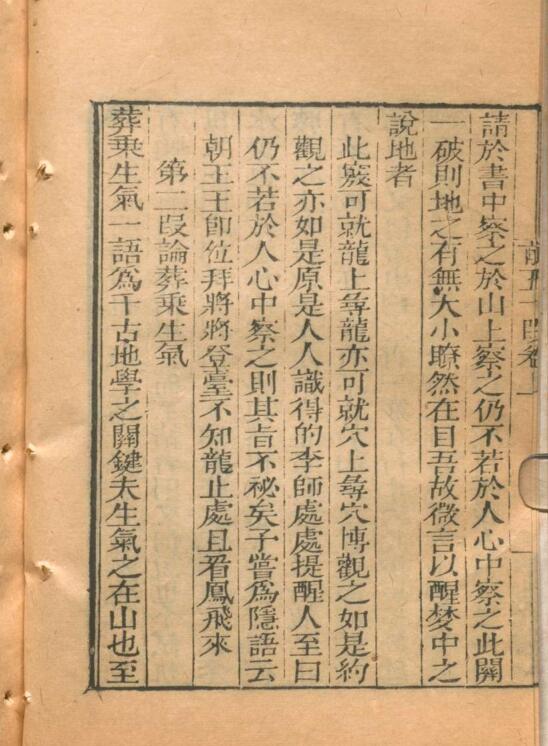 請於書中察之於山上察之仍不若於人心中察之此關
一破則地之有無大小瞭然在目吾故微言以醒夢中之
說地者
此竅可就龍上尋龍亦可就穴上尋穴博觀之如是約
觀之亦如是原是人人識得的李師處處提醒人至曰
仍不若於人心中察之則其旨不祕矣子嘗為隱語云
朝王王即位拜將將登臺不知龍止處且看鳳飛來
第二段論葬乘生氣
葬乘生氣一語為千古地學之關鍵夫生氣之在山也至